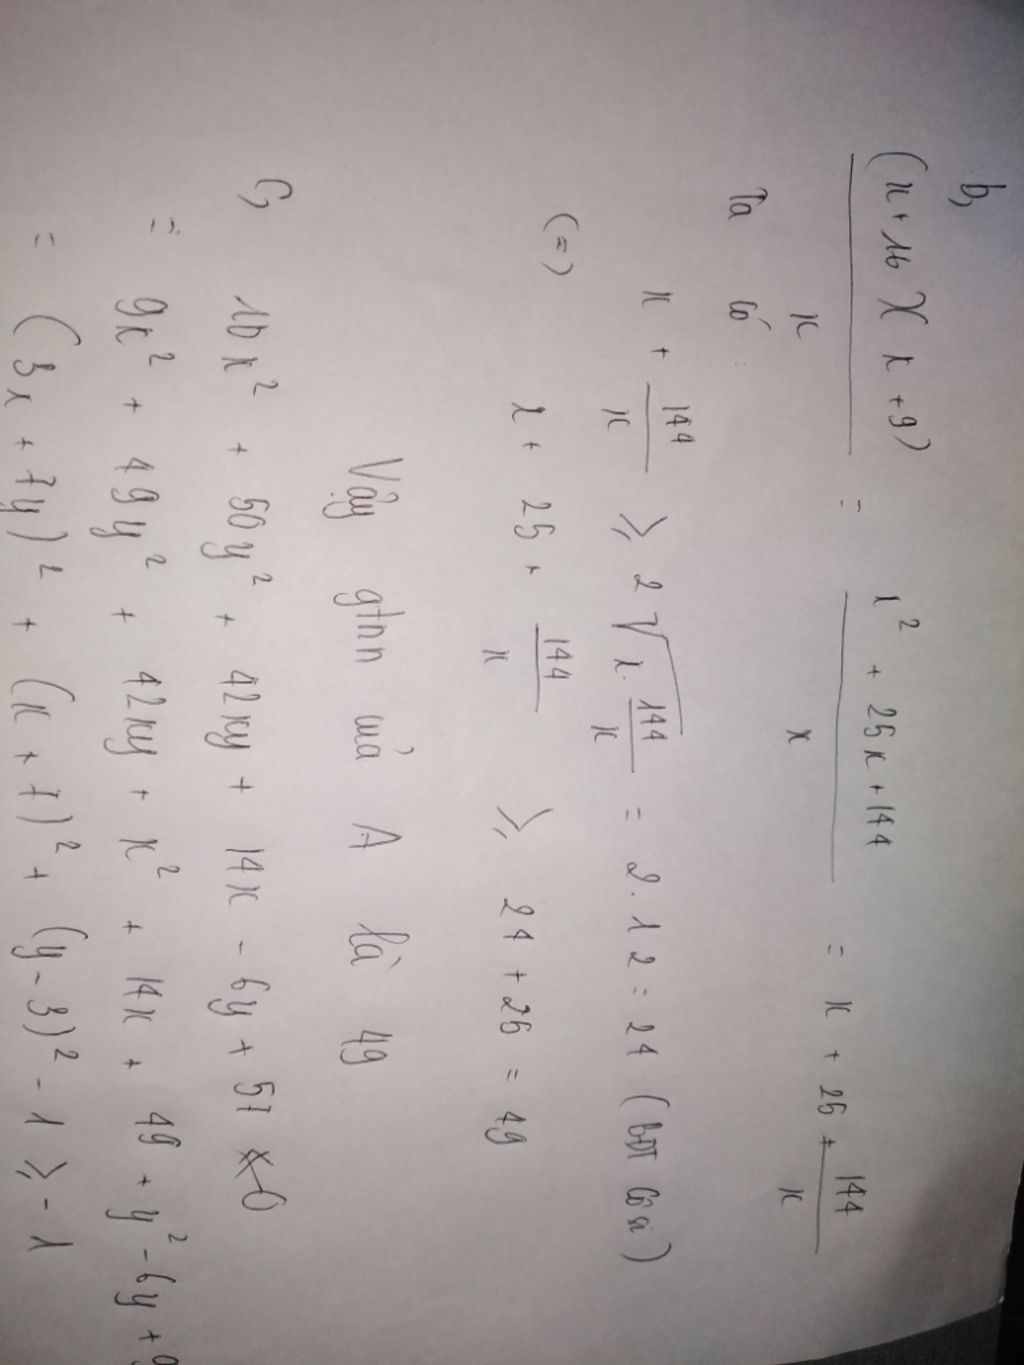 b,
(x + 16)(x + 9) / x = x² + 25x + 144 / x = x + 25 + 144/x
Ta có:
x + 144/x ≥ 2√(x. 144/x) = 2.12 = 24 (BĐT Cô si)
(=) x + 25 + 144/x ≥ 24 + 25 = 49
Vậy gtnn của A là 49
C, 10x² + 50y² + 42xy + 14x - 6y + 57
= 9x² + 49y² + 42xy + x² + 14x + 49 + y² - 6y + 9
= (3x + 7y)² + (x + 7)² + (y - 3)² - 1 ≥ -1